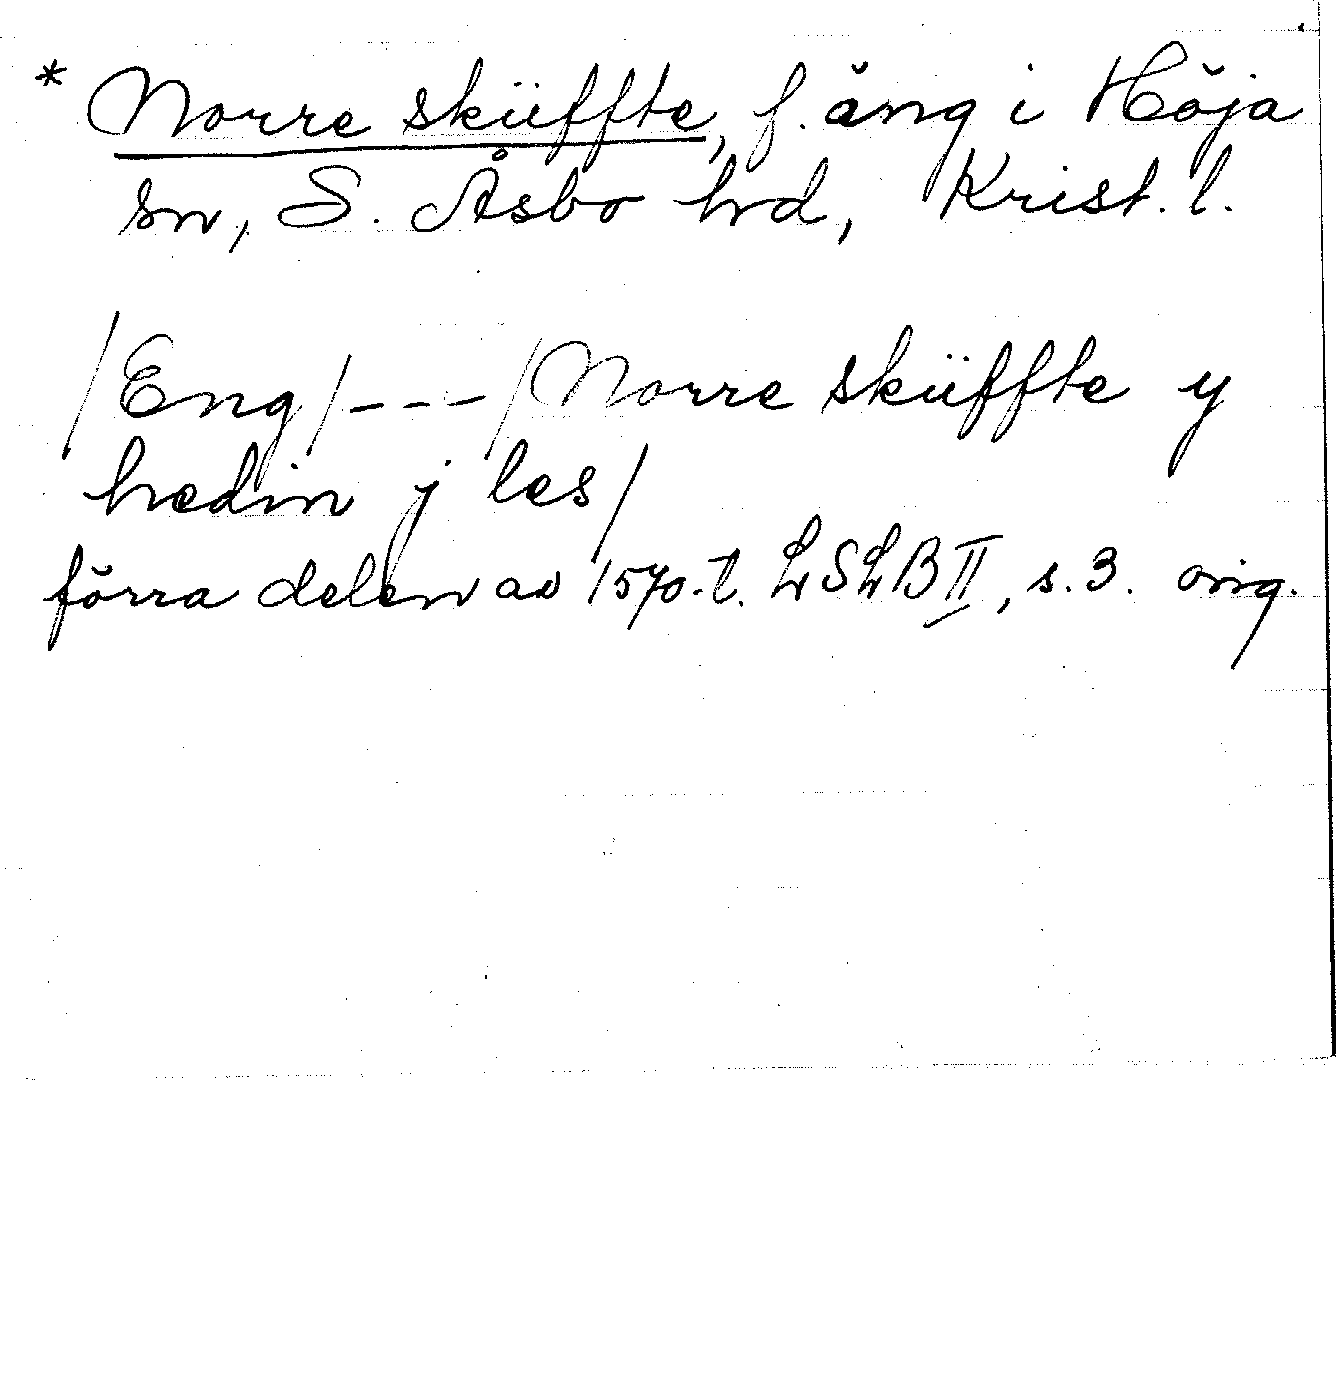 * Norre sküffte, f. äng i Höja
sn, S. Åsbo hrd, Krist. l.
/Eng/ --- /Norre sküffte y
hedin j les/
förra delen av 1570-t. LSLB II, s. 3. orig.